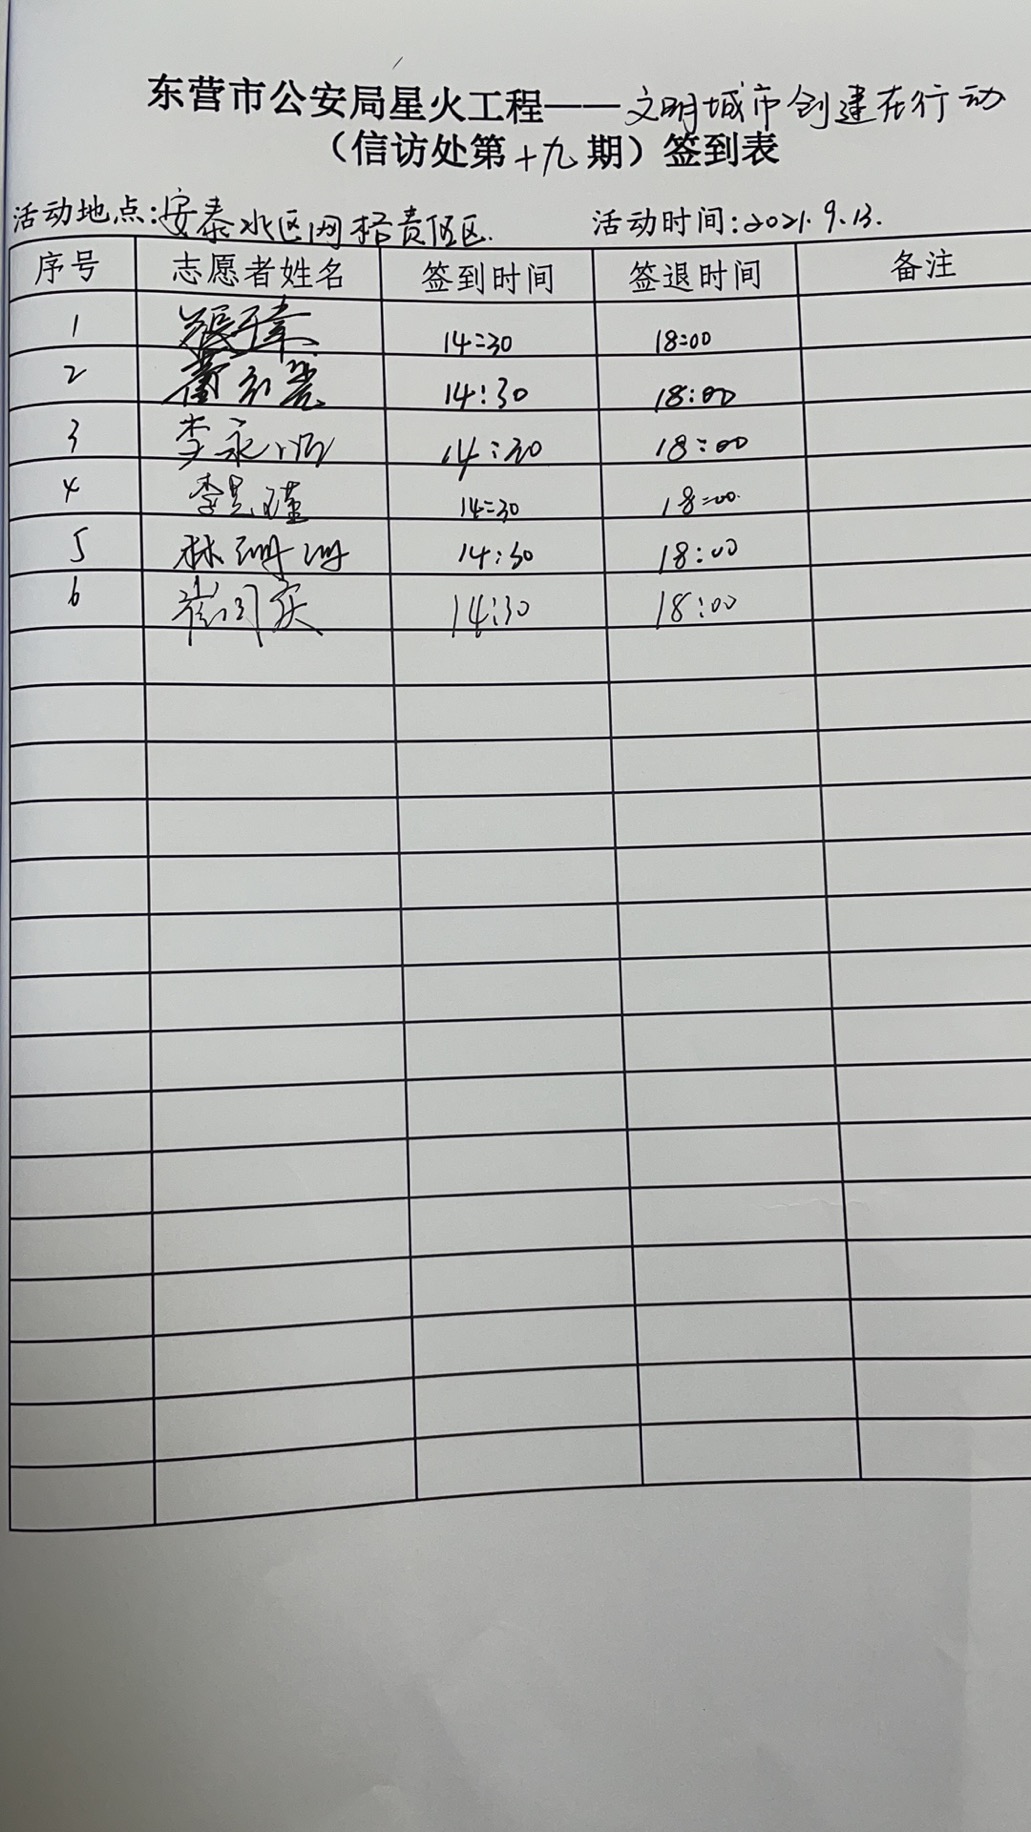 东营市公安局星火工程——文明城市创建在行动
（信访处第十九期）签到表
活动地点:安泰北区网格责任区. 活动时间:2021.9.13.
序号 志愿者姓名 签到时间 签退时间 备注
1 14:30 18:00
2 14:30 18:00
3 李永 14:30 18:00
4 李 14:30 18:00
5 林珊珊 14:30 18:00
6 崔同庆 14:30 18:00